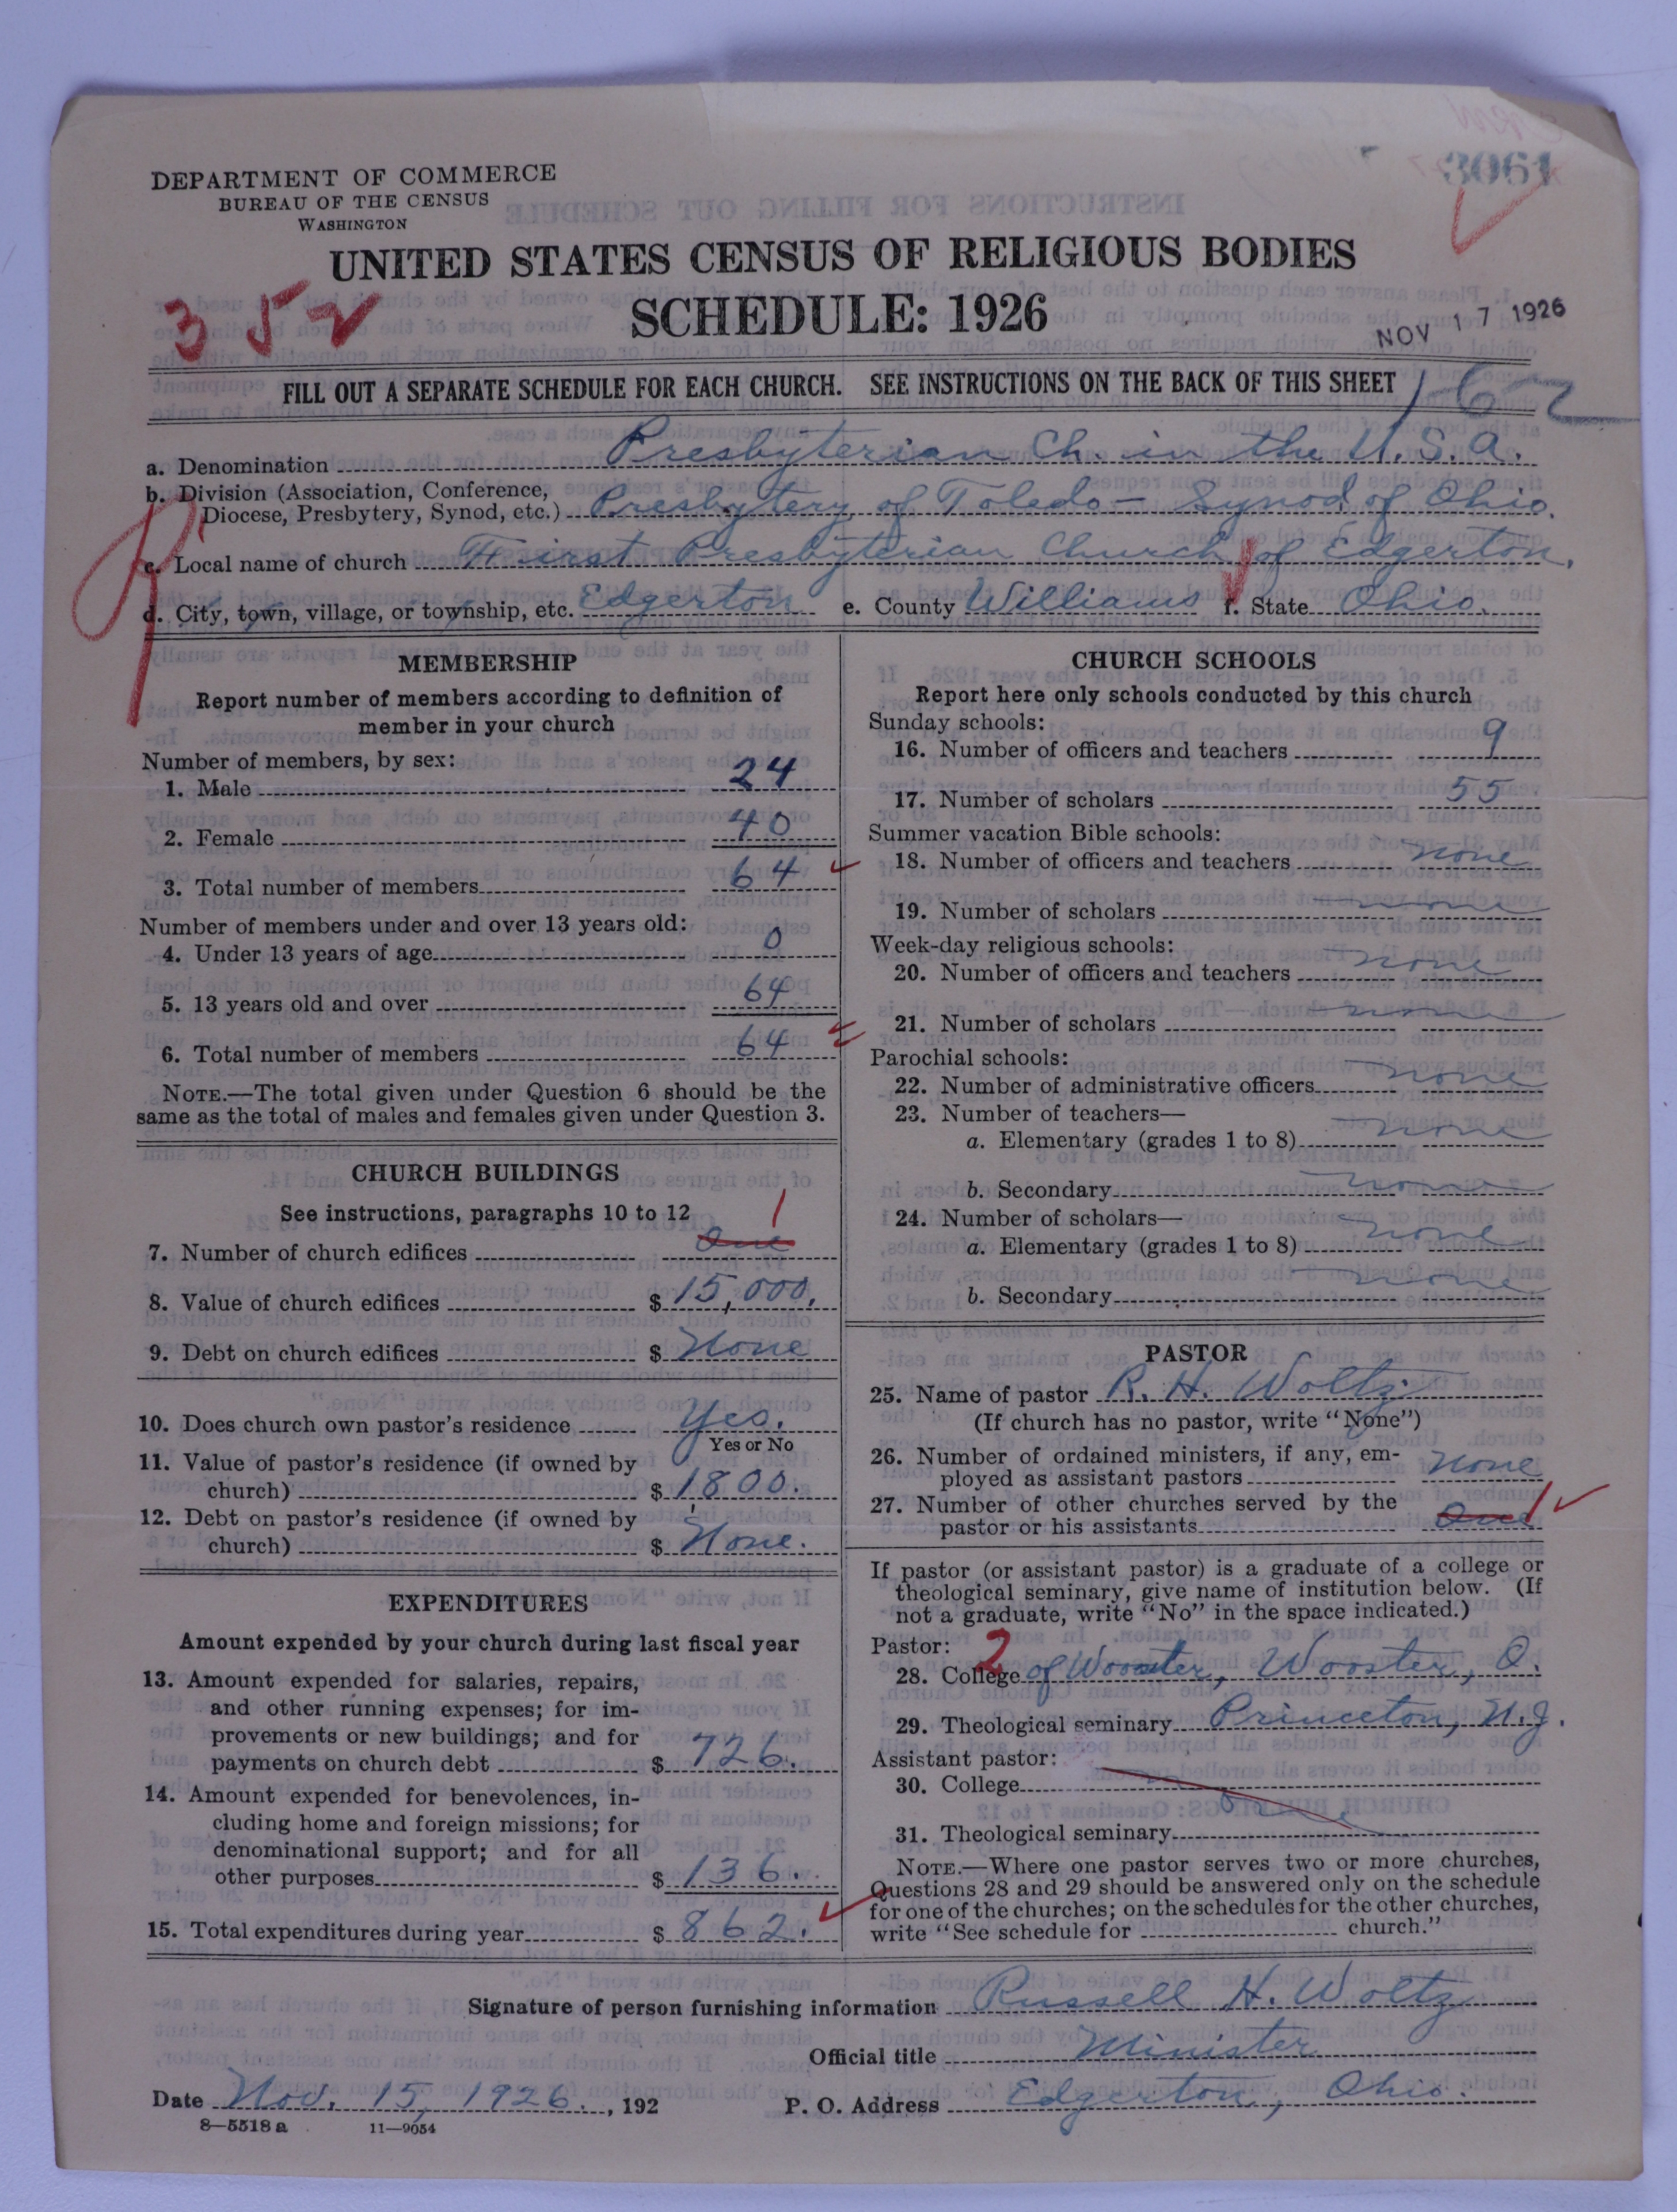 3061
DEPARTMENT OF COMMERCE
BUREAU OF THE CENSUS
WASHINGTON
UNITED STATES CENSUS OF RELIGIOUS BODIES
SCHEDULE: 1926
352
NOV 17 1926
FILL OUT A SEPARATE SCHEDULE FOR EACH CHURCH. SEE INSTRUCTIONS ON THE BACK OF THIS SHEET
162
a. Denomination Presbyterian Ch. in the U.S.A.
b. Division (Association, Conference,
Diocese, Presbytery, Synod, etc.) Presbytery of Toledo - Synod of Ohio.
c. Local name of church First Presbyterian Church of Edgerton.
d. City, town, village, or township, etc. Edgerton e. County Williams f. State Ohio.
MEMBERSHIP
Report number of members according to definition of
member in your church
Number of members, by sex:
1. Male 24
2. Female 40
3. Total number of members 64
Number of members under and over 13 years old:
4. Under 13 years of age 0
5. 13 years old and over 64
6. Total number of members 64
NOTE.—The total given under Question 6 should be the
same as the total of males and females given under Question 3.
CHURCH BUILDINGS
See instructions, paragraphs 10 to 12
7. Number of church edifices One 1
8. Value of church edifices $ 15,000.
9. Debt on church edifices $ None
10. Does church own pastor's residence Yes.
Yes or No
11. Value of pastor's residence (if owned by
church) $ 1800.
12. Debt on pastor's residence (if owned by
church) $ None.
EXPENDITURES
Amount expended by your church during last fiscal year
13. Amount expended for salaries, repairs,
and other running expenses; for im-
provements or new buildings; and for
payments on church debt $ 726.
14. Amount expended for benevolences, in-
cluding home and foreign missions; for
denominational support; and for all
other purposes $ 136.
15. Total expenditures during year $ 862.
CHURCH SCHOOLS
Report here only schools conducted by this church
Sunday schools:
16. Number of officers and teachers 9
17. Number of scholars 55
Summer vacation Bible schools:
18. Number of officers and teachers none
19. Number of scholars none
Week-day religious schools:
20. Number of officers and teachers none
21. Number of scholars none
Parochial schools:
22. Number of administrative officers none
23. Number of teachers—
a. Elementary (grades 1 to 8) none
b. Secondary none
24. Number of scholars—
a. Elementary (grades 1 to 8) none
b. Secondary none
PASTOR
25. Name of pastor R. H. Woltz
(If church has no pastor, write "None")
26. Number of ordained ministers, if any, em-
ployed as assistant pastors none
27. Number of other churches served by the
pastor or his assistants One 1
If pastor (or assistant pastor) is a graduate of a college or
theological seminary, give name of institution below. (If
not a graduate, write "No" in the space indicated.)
Pastor: 2
28. College of Wooster, Wooster, O.
29. Theological seminary Princeton, N.J.
Assistant pastor:
30. College
31. Theological seminary
NOTE.—Where one pastor serves two or more churches,
Questions 28 and 29 should be answered only on the schedule
for one of the churches; on the schedules for the other churches,
write "See schedule for church."
Signature of person furnishing information Russell H. Woltz
Official title Minister
Date Nov. 15, 1926., 192 P. O. Address Edgerton, Ohio.
8—5518 a 11—9054